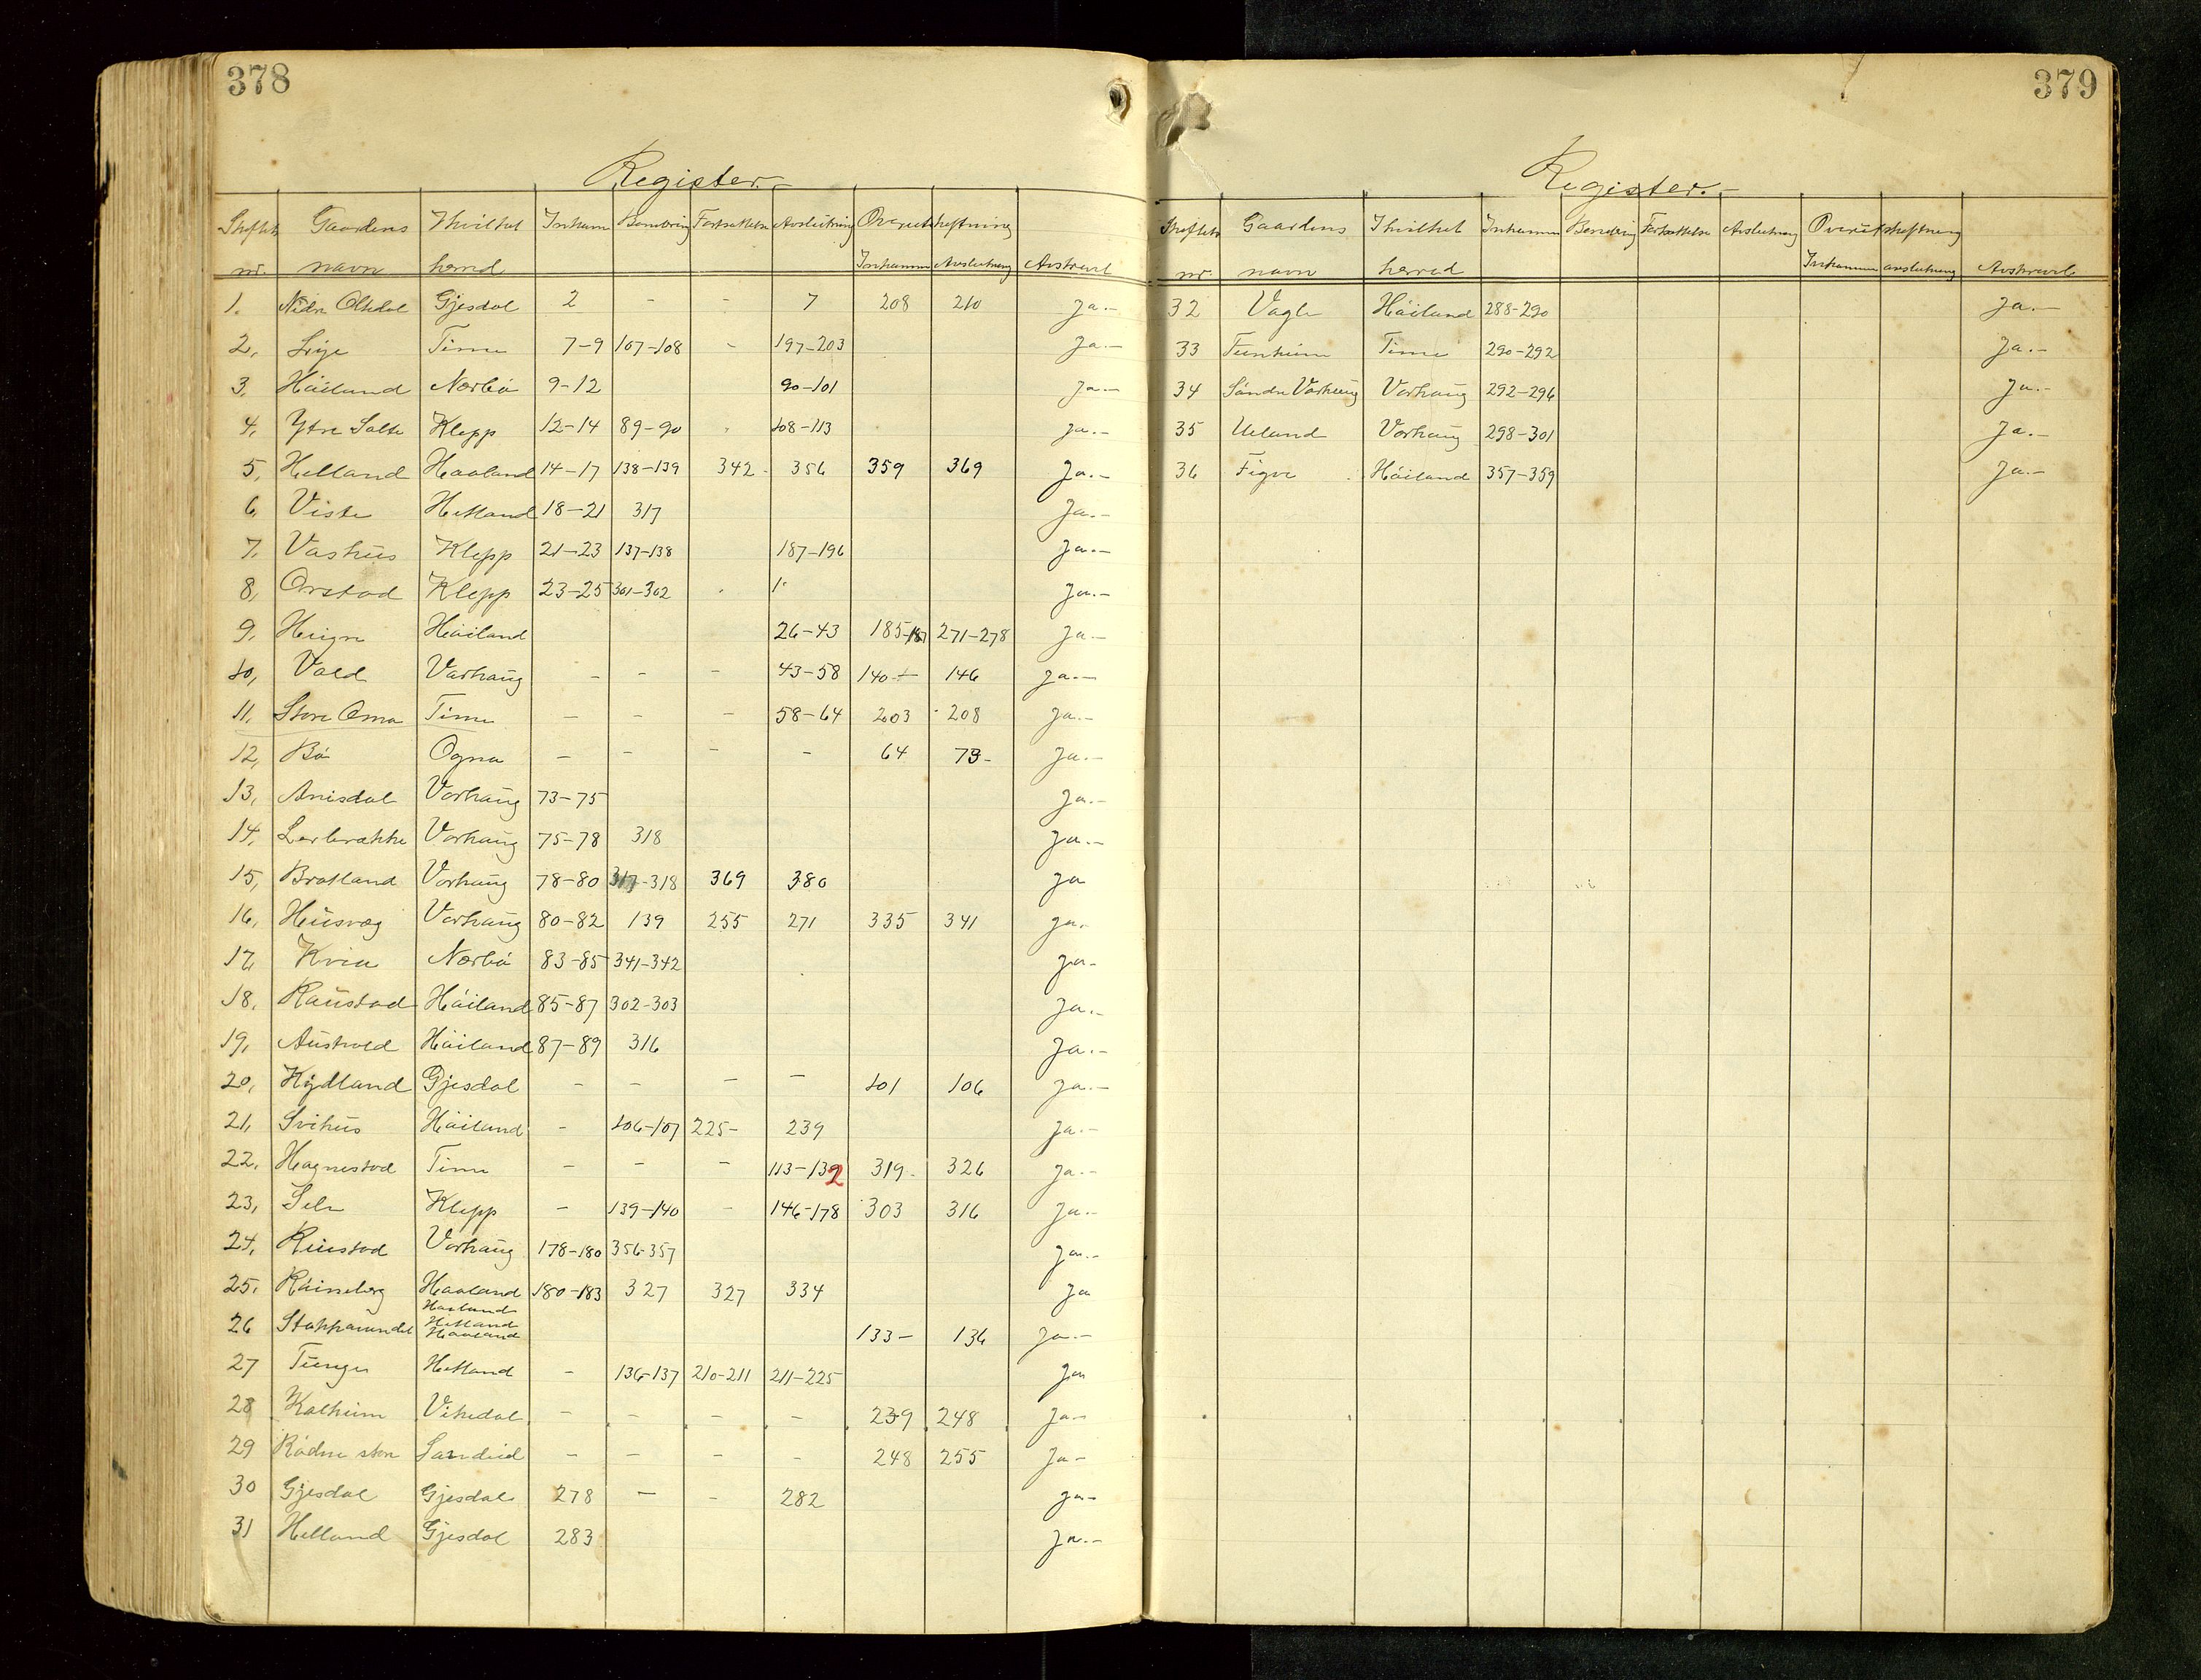 378
Register.
Gaardens I hvilket Inkam Fortsættelse Avslutning Overutskiftning
nr. navn herred Inkammen Avslutning Avskrevet
1. Nedre Oltedal Gjesdal 2 - - 7 208 210 Ja.-
2, Lye Time 7-9 107-108 - 197-203 Ja.-
3, Håiland Nærbö 9-12 90-101 Ja.-
4, Ytre Salte Klepp 12-14 89-90 108-113 Ja.-
5, Helland Haaland 14-17 138-139 342- 356 359 369 Ja.-
6, Viste Hetland 18-21 317 Ja.-
7, Vashus Klepp 21-23 137-138 187-196 Ja.-
8, Orstad Klepp 23-25 301-302 Ja.-
9, Heigre Håiland 26-43 185-187 271-278 Ja-
10, Vold Varhaug - - - 43-58 140- 146 Ja.-
11, Store Oma Time - - - 58-64 203 208 Ja.-
12, Bö Ogna - - - - 64 73- Ja.-
13, Anisdal Varhaug 73-75 Ja.-
14, Lerbrække Varhaug 75-78 318 Ja.-
15, Bratland Varhaug 78-80 317-318 369 380 Ja
16, Husvæg Varhaug 80-82 139 255 271 335 341 Ja.
17, Kvia Nærbö 83-85 341-342 Ja-
18, Raustad Håiland 85-87 302-303 Ja.-
19, Austvold Håiland 87-89 316 Ja.-
20, Kydland Gjesdal - - - - 101 106 Ja.-
21, Svihus Håiland - 106-107 225- 239 Ja.-
22, Hognestad Time - - - 113-132 319- 326 Ja.-
23, Sele Klepp - 139-140 - 146-178 303 316 Ja.-
24, Reiestad Varhaug 178-180 356-357 Ja.-
25, Håland 180-183 327 327 334 Ja
Haaland
26 Hetland 133- 136 Ja.-
Haaland
27 Tunge Hetland - 136-137 210-211 211-225 Ja
28 Kalheim Vikedal - - - - 239 248 Ja-
29 Rödne store Sandeid - - - - 248 255 Ja-
30 Gjesdal Gjesdal 278 - - 282 Ja-
31 Helland Gjesdal 283 Ja.-
379
Register.-
Gaardens I hvilket Inkammen Fortsættelse Avslutning Overutskiftning
nr navn herred Inkammen avslutning Avskrevet
32 Vagle Håiland 288-290 Ja.-
33 Tunheim Time 290-292 Ja.-
34 Söndre Varhaug Varhaug 292-296 Ja.-
35 Ueland Varhaug 298-301 Ja.-
36 Figve Håiland 357-359 Ja.-